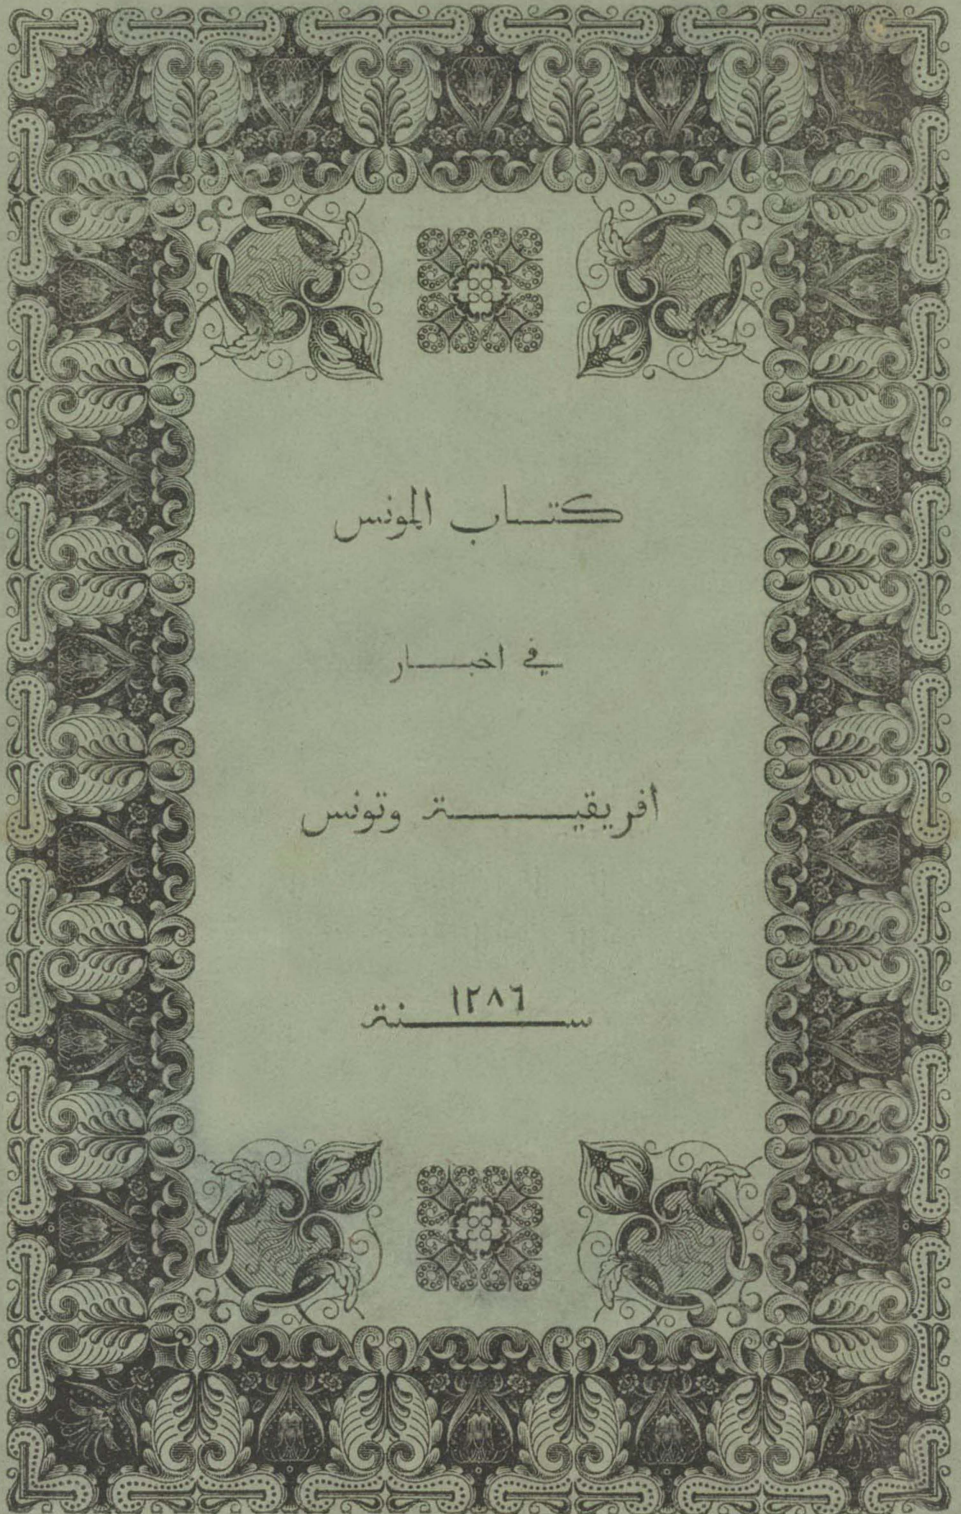 كتاب المونس
في اخبار
افريقية وتونس
سنة ١٢٨٦